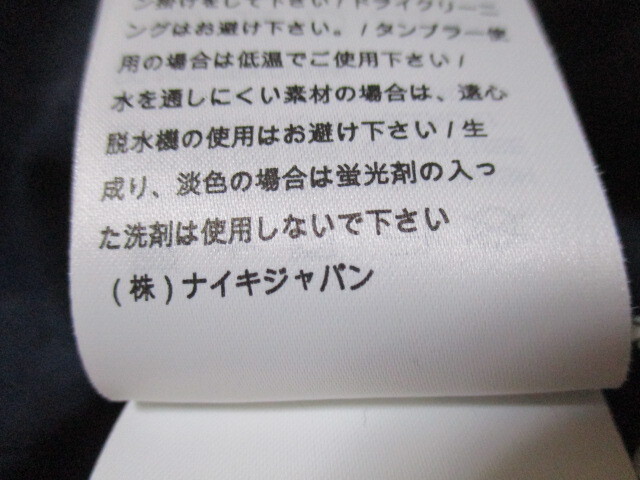 ン掛けをして下さい / ドライクリーニ
ングはお避け下さい。 / タンブラー使
用の場合は低温でご使用下さい /
水を通しにくい素材の場合は、遠心
脱水機の使用はお避け下さい / 生
成り、淡色の場合は蛍光剤の入っ
た洗剤は使用しないで下さい
(株)ナイキジャパン